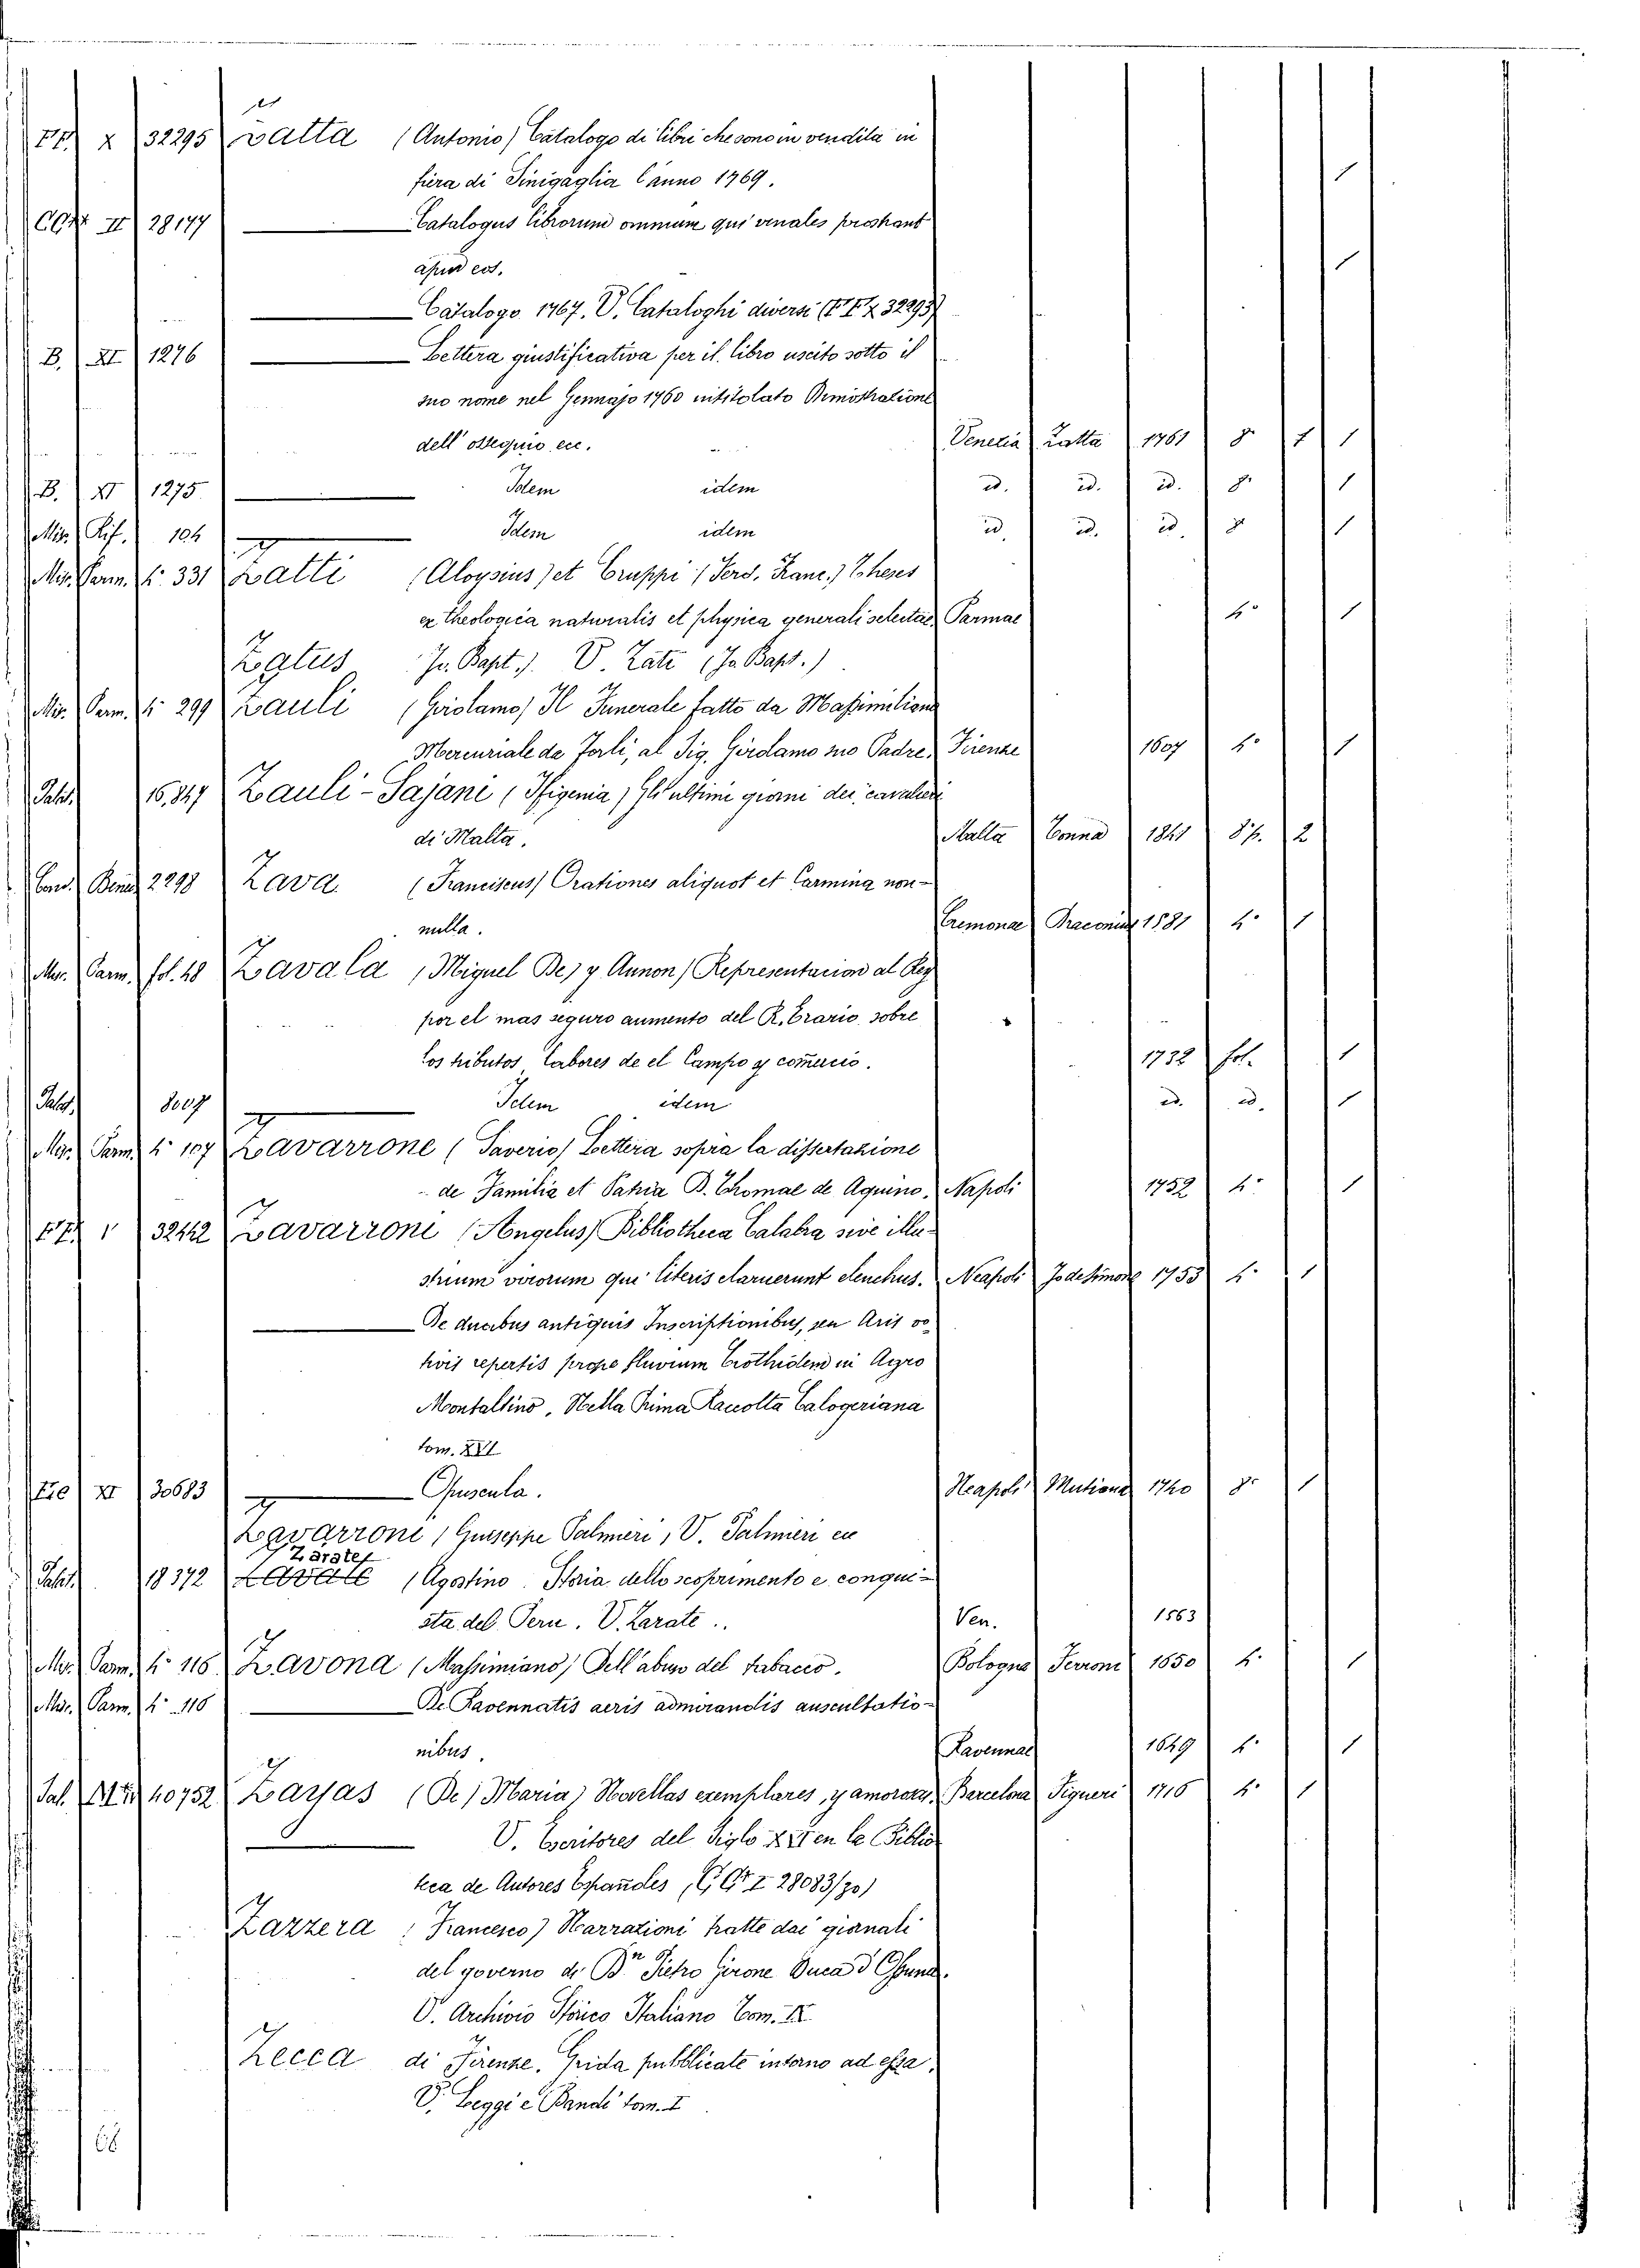 FF. X 32295 Zatta (Antonio) Catalogo di libri che sono in vendita in
fiera di Sinigaglia l'anno 1769. 1
II 28177 Catalogus librorum omnium qui venales prostant
apud eos. 1
Catalogo 1767. V. Cataloghi diversi (FF X 32293)
B. XI 1276 Lettera giustificativa per il libro uscito sotto il
suo nome nel Gennajo 1760 intitolato
dell'ossequio ecc. Venezia Zatta 1761 8° 1 1
B. XI 1275 Idem idem id. id. id. 8° 1
Mis. Rif. 104 Idem idem id. id. id. 8° 1
Mis. Parm. 4° 331 Zatti (Aloysius) et Cruppi (Ferd. Franc.) Theses
ex theologica naturalis et physica generali selectae Parmae 4° 1
Zatus Jo. Bapt.). V. Zati (Jo. Bapt.)
Mis. Parm. 4° 299 Zauli (Girolamo) Il Funerale fatto da Massimiliano
Mercuriale da Forlì, al Sig. Girolamo suo Padre. Firenze 1607 4° 1
Palat. 16,847 Zauli-Sajani (Ifigenia) Gli ultimi giorni dei cavalieri
di Malta. Malta Tonna 1841 8° p. 2
Cand. Bened. 2298 Zava (Franciscus) Orationes aliquot et Carmina non-
nulla. Cremonae Draconius 1581 4° 1
Mis. Parm. fol. 48 Zavala (Miguel De) y Aunon) Representacion al Rey
por el mas seguro aumento del R. Erario sobre
los tributos, labores de el Campo y comercio. 1732 fol. 1
Palat. 8007 Idem idem id. id. 1
Mis. Parm. 4° 107 Zavarrone (Saverio) Lettera sopra la dissertazione
de Familia et Patria B. Thomae de Aquino. Napoli 1752 4° 1
FF. 1 32242 Zavarroni (Angelus) Bibliotheca Calabra sive illu-
strium virorum qui literis claruerunt elenchus. Neapoli Jo de Simone 1753 4° 1
De duabus antiquis Inscriptionibus, seu Aris vo-
tivis repertis prope fluvium Crothiden in Agro
Montaltino. Nella Prima Raccolta Calogeriana
tom. XVI
XI 30683 Opuscula. Neapoli Mutiana 1740 8° 1
Zavarroni (Giuseppe Palmieri, V. Palmieri ecc
Zarate
Palat. 18372 Zavate (Agostino. Storia dello scoprimento e conqui-
sta del Peru. V. Zarate.. Ven. 1563
Mis. Parm. 4° 116 Zavona (Massimiano) Dell'abuso del tabacco. Bologna Ferroni 1650 4° 1
Mis. Parm. 4° 116 De Ravennatis aeris admirandis auscultatio-
nibus. Ravennae 1649 4° 1
Pal. 40752 Zayas (De) Maria) Novellas exemplares, y amorosas. Barcelona Figueri 1716 4° 1
V. Escritores del Siglo XVI en la Biblio-
teca de Autores Españoles, 28083/30)
Zazzera (Francesco) Narrazioni tratte dai giornali
del governo di Dn Pietro Girone Duca d'Ossuna.
V. Archivio Storico Italiano Tom. IX
Zecca di Firenze. Grida pubblicate intorno ad essa.
V. Leggi e Bandi tom. I